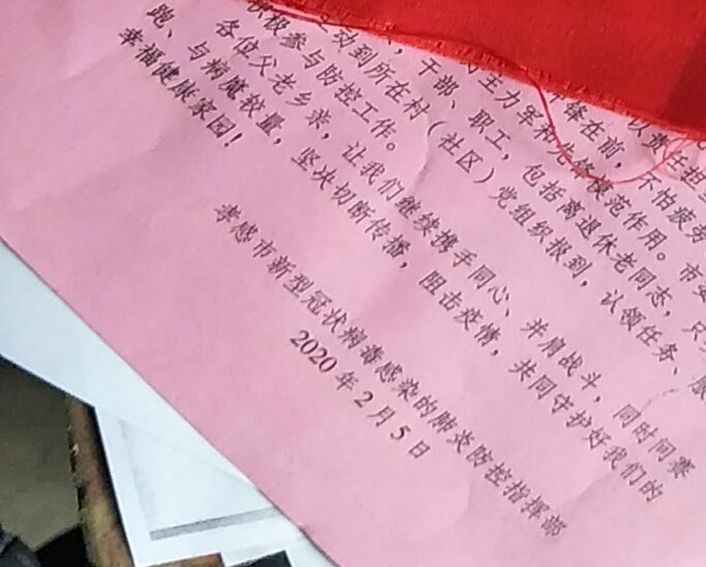 锋在前，不怕疲劳
主力军和先锋模范作用。市委
干部、职工，包括离退休老同志，只
动到所在村（社区）党组织报到，认领任务、服
积极参与防控工作。
各位父老乡亲，让我们继续携手同心、并肩战斗，同时间赛
跑、与病魔较量，坚决切断传播，阻击疫情，共同守护好我们的
幸福健康家园！
孝感市新型冠状病毒感染的肺炎防控指挥部
2020年2月5日